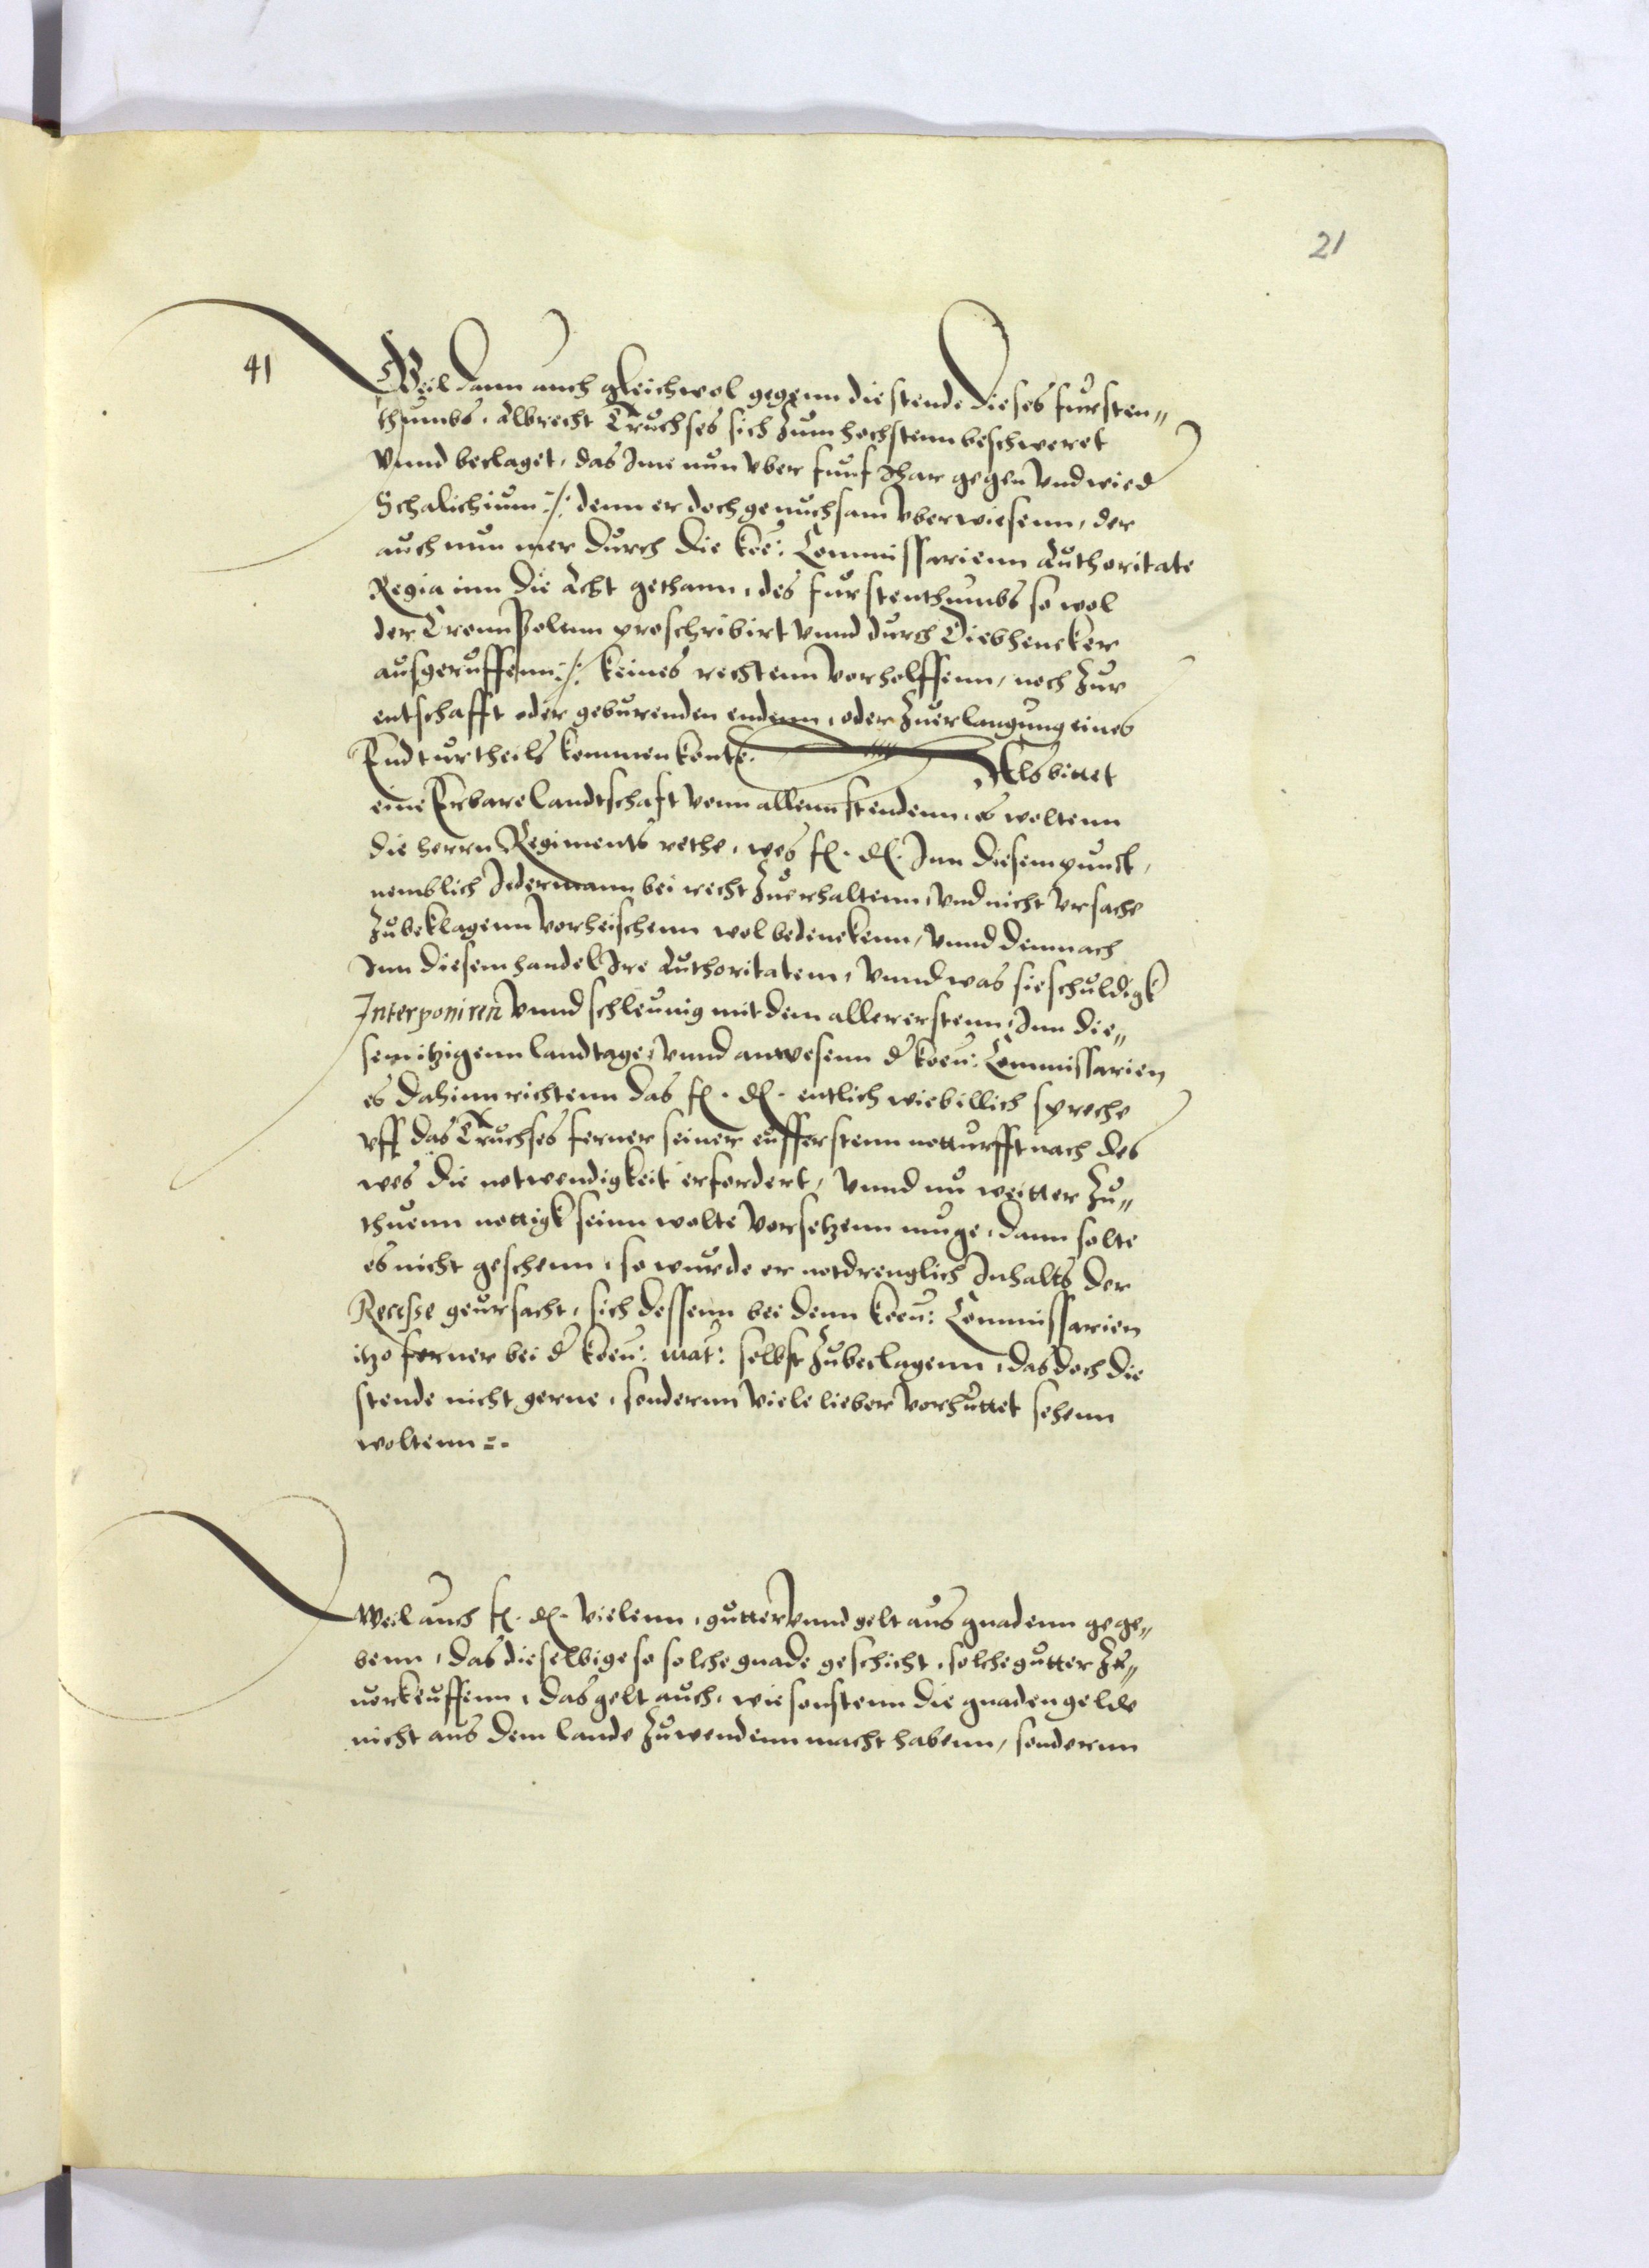 21
41
Weil dann auch gleichwol gegenn die stende dieses fursten„
thumbs, Albrecht Truchses sich zum hochstenn beschweret
Vnnd beclaget, das Jme nun vber funf Jhar gegen Vnd wied
Schalichium ·/· denn er doch genuchsam vberwiesenn, der
auch nun mer durch die koe: Commissarienn Authoritate
Regia inn die Acht gethann, des furstenthumbs so wol
der Cronn Polenn proschribirt vnnd durch Diebhencker
ausgeruffenn ·/· keines rechtenn Vorholffenn, noch zur
entschafft oder geburenden endenn, oder zuerlangung eines
Endturtheils kommen konte. Als bittet
eine Erbare Landtschaft vonn allenn stendenn, es woltenn
die herrn Regiments rethe, wes f. d. Jnn diesem punct,
nemblich Jdermann bei recht zuerhaltenn, vnd nicht vrsache
zubeklagenn Vorheischenn wol bedenckenn, vnnd demnach
Jnn diesem handel Jre Authoritatem, vnnd was sie schuldigk
Interponiren vnnd schleunig mit dem allererstenn, Jnn die„
sem itzigenn landtage, vnnd anwesenn d koeu: Commissarien
es dahinn richtenn das f. d. entlich wie billich spreche
vff das Truchses ferner seiner eusserstenn notturfft nach des
wes die notwendigkeit erfordert, vnnd nu weitter zu„
thuenn nottigk seinn wolte Vorsetzenn muge, dann solte
es nicht geschenn, so wurde er notdrenglich Jnhalts der
Recesse geursacht, sich dessenn bei denn koeu: Commissarien
itzo ferner bei d koeu: mat: selbst zubeclagenn, das doch die
stende nicht gerne, sonderun viele lieber vorhuttet sehenn
woltenn =.
Weil auch f. d. vielenn, gutter vnnd gelt aus gnadenn gege„
benn, das dieselbige so solche gnade geschicht, solche gutter zu„
uorkeuffenn, das gelt auch, wie sonstenn die gnadengelde
nicht aus dem lande zuwendenn macht habenn, sonderun